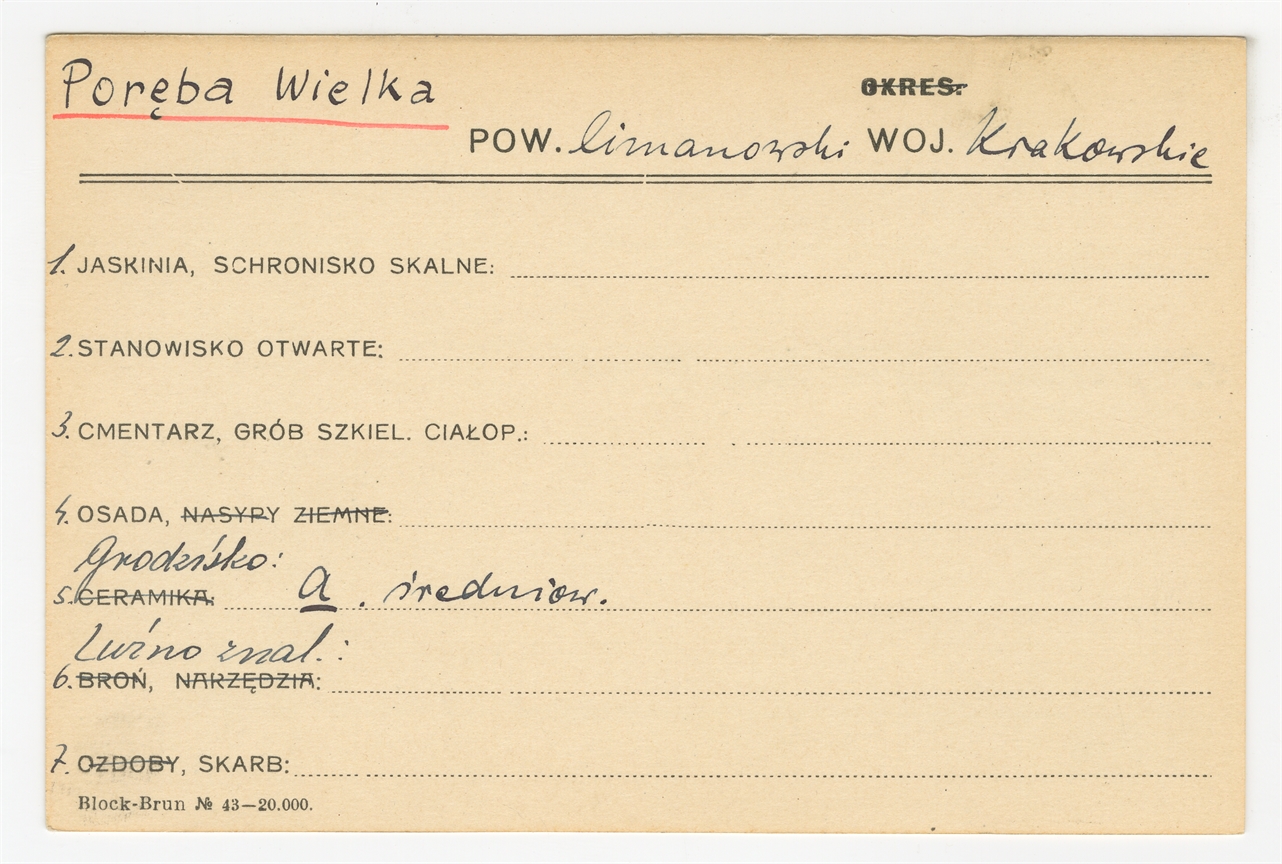 Poręba Wielka
OKRES:
POW. limanowski WOJ. Krakowskie
1. JASKINIA, SCHRONISKO SKALNE:
2. STANOWISKO OTWARTE:
3. CMENTARZ, GRÓB SZKIEL. CIAŁOP.:
4. OSADA, NASYPY ZIEMNE:
Grodzisko:
5. CERAMIKA: A. średniow.
Luźno znal.:
6. BROŃ, NARZĘDZIA:
7. OZDOBY, SKARB:
Block-Brun № 43—20.000.